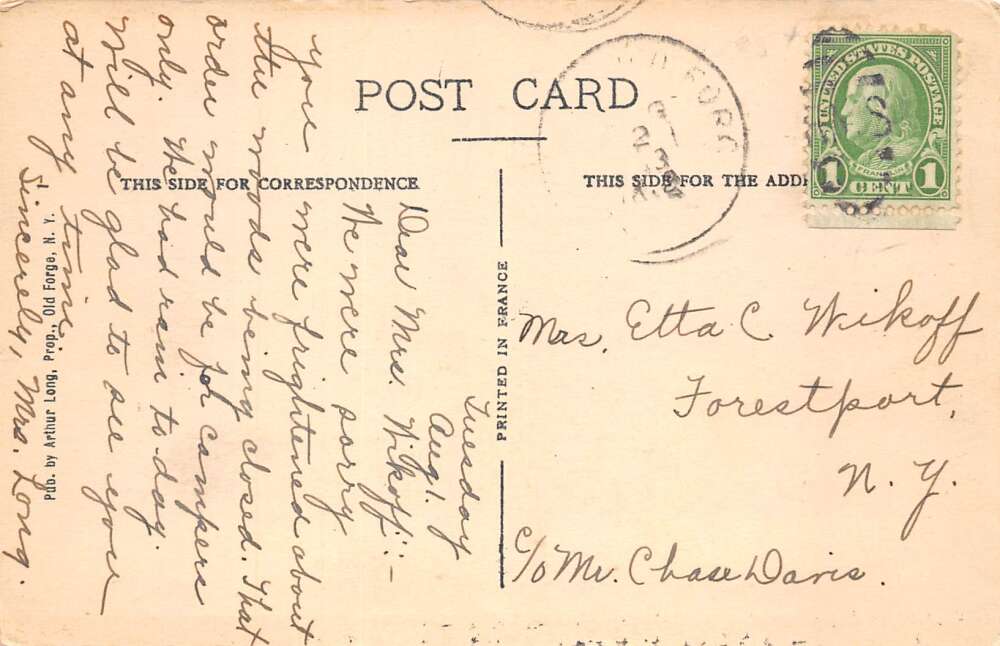 POST CARD
THIS SIDE FOR CORRESPONDENCE
THIS SIDE FOR THE ADD
UNITED STATES POSTAGE
FRANKLIN
1 CENT 1
PRINTED IN FRANCE
Pub. by Arthur Long, Prop., Old Forge, N. Y.
Tuesday
Aug.
Dear Mrs. Wikoff:-
We were sorry
you were frightened about
the woods being closed. That
order would be for campers
only. We had rain to-day.
Will be glad to see you
at any time.
Sincerely, Mrs. Long.
Mrs. Etta C. Wikoff
Forestport,
N. Y.
c/o Mr. Chase Davis.